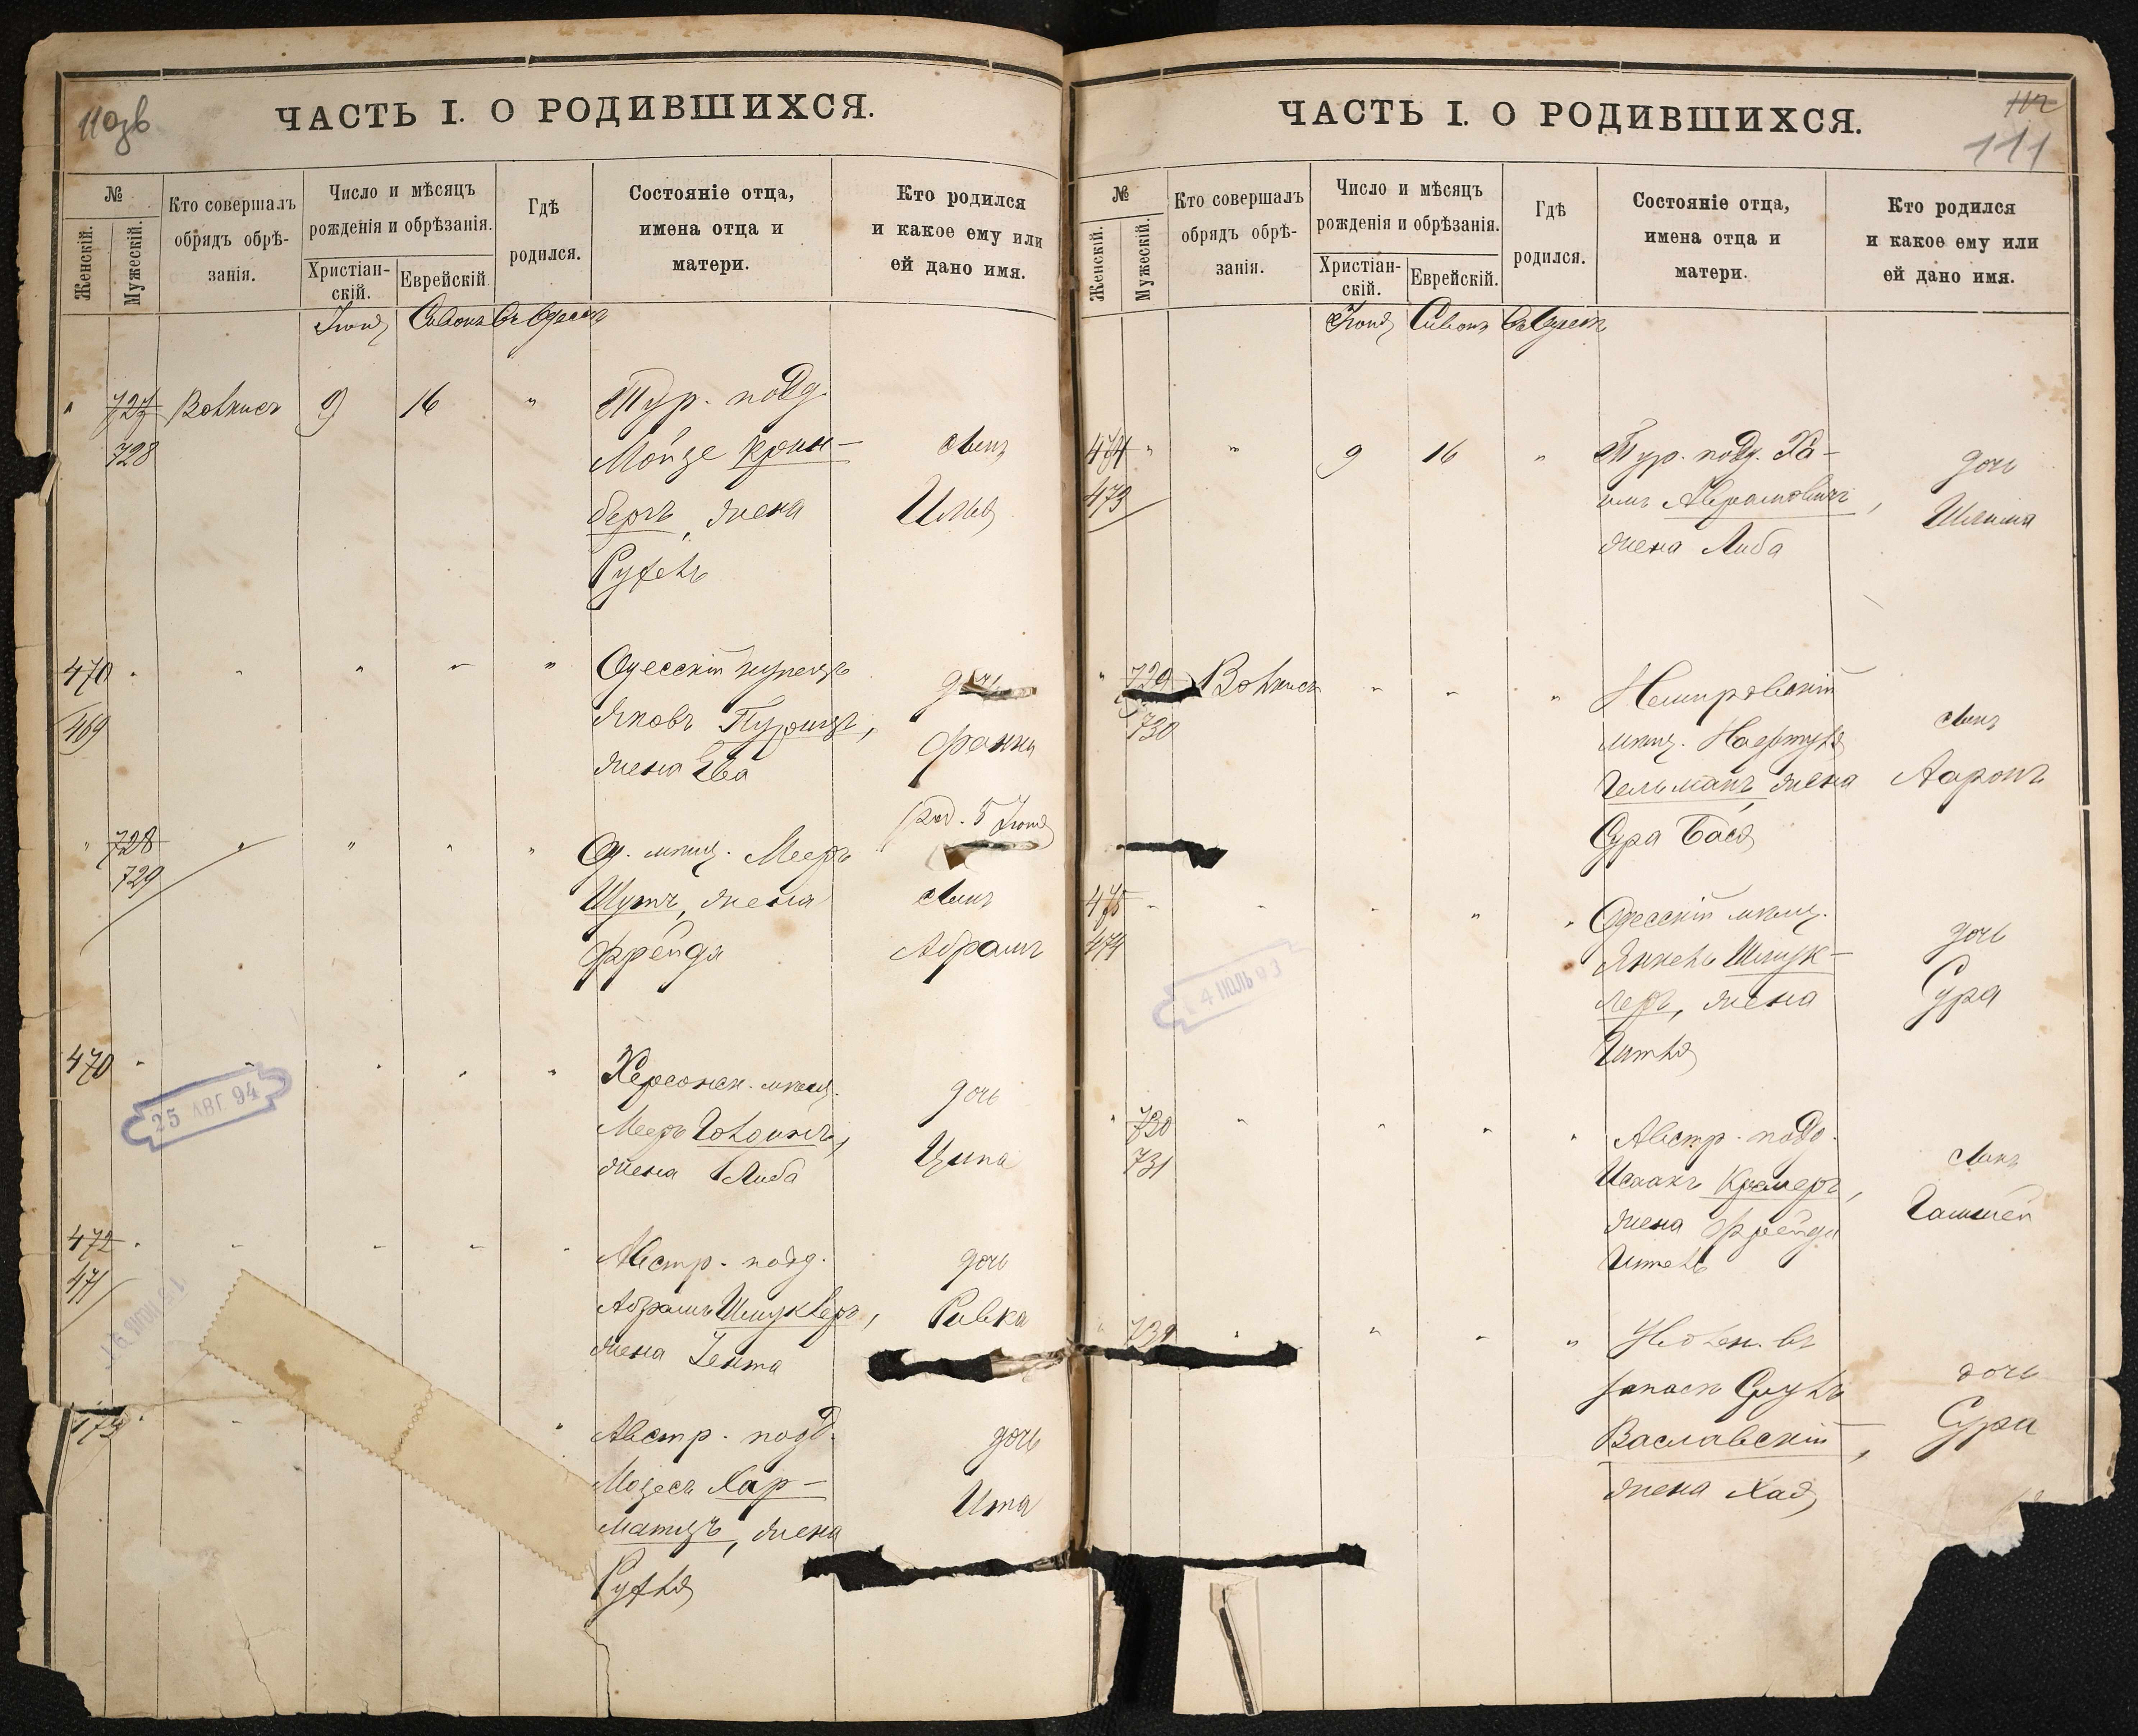 110зв
ЧАСТЬ I. О РОДИВШИХСЯ.
№
Женскій.
Мужескій.
Кто совершалъ
обрядъ обрѣ-
занія.
Число и мѣсяцъ
рожденія и обрѣзанія.
Христіан-
скій.
Еврейскій.
Гдѣ
родился.
Состояніе отца,
имена отца и
матери.
Кто родился
и какое ему или
ей дано имя.
Іюня Сивонъ Въ Одессѣ
" 727 9 16 " Тур. подд.
728 Мойзе Крон- сынъ
бергъ, жена
Рухель
470 " " " " " Одесскій купецъ дочь
469 Яковъ Пурицъ, Фанни
жена Ева
род. 5 Іюня
" 728 " " " " Од. мѣщ. Мееръ
729 Шутъ, жена сынъ
Фрейда Абрамъ
470 " " " " " Херсонск. мѣщ. дочь
25 АВГ 94
Мееръ Гольдинъ, Ципа
жена Либа
472 " " " " " Австр. подд. дочь
471 Абрамъ Шмуклеръ, Ривка
жена Зента
" Австр. подд. дочь
Мозесъ Хар- Ита
матцъ, жена
Рухля
112
111
ЧАСТЬ I. О РОДИВШИХСЯ.
№
Женскій.
Мужескій.
Кто совершалъ
обрядъ обрѣ-
занія.
Число и мѣсяцъ
рожденія и обрѣзанія.
Христіан-
скій.
Еврейскій.
Гдѣ
родился.
Состояніе отца,
имена отца и
матери.
Кто родился
и какое ему или
ей дано имя.
Іюня Сивонъ Въ Одессѣ
474 " " 9 16 " Тур. подд. Ха- дочь
473 имъ Абрамовичъ,
жена Либа
" 729 " " " Немировскій
730 мѣщ. сынъ
Гельманъ, жена Ааронъ
Сура Бася
475 " " " " " Одесскій мѣщ. дочь
474 Янкель Шмук- Сура
4 ІЮЛЬ 93
леръ, жена
Гитля
" 730 " " " " Австр. подд. сынъ
731 Исаакъ Крамеръ,
жена Фрейда
Гитель
" " " " "
запасѣ Сруль дочь
Ваславскій, Сура
жена Хая